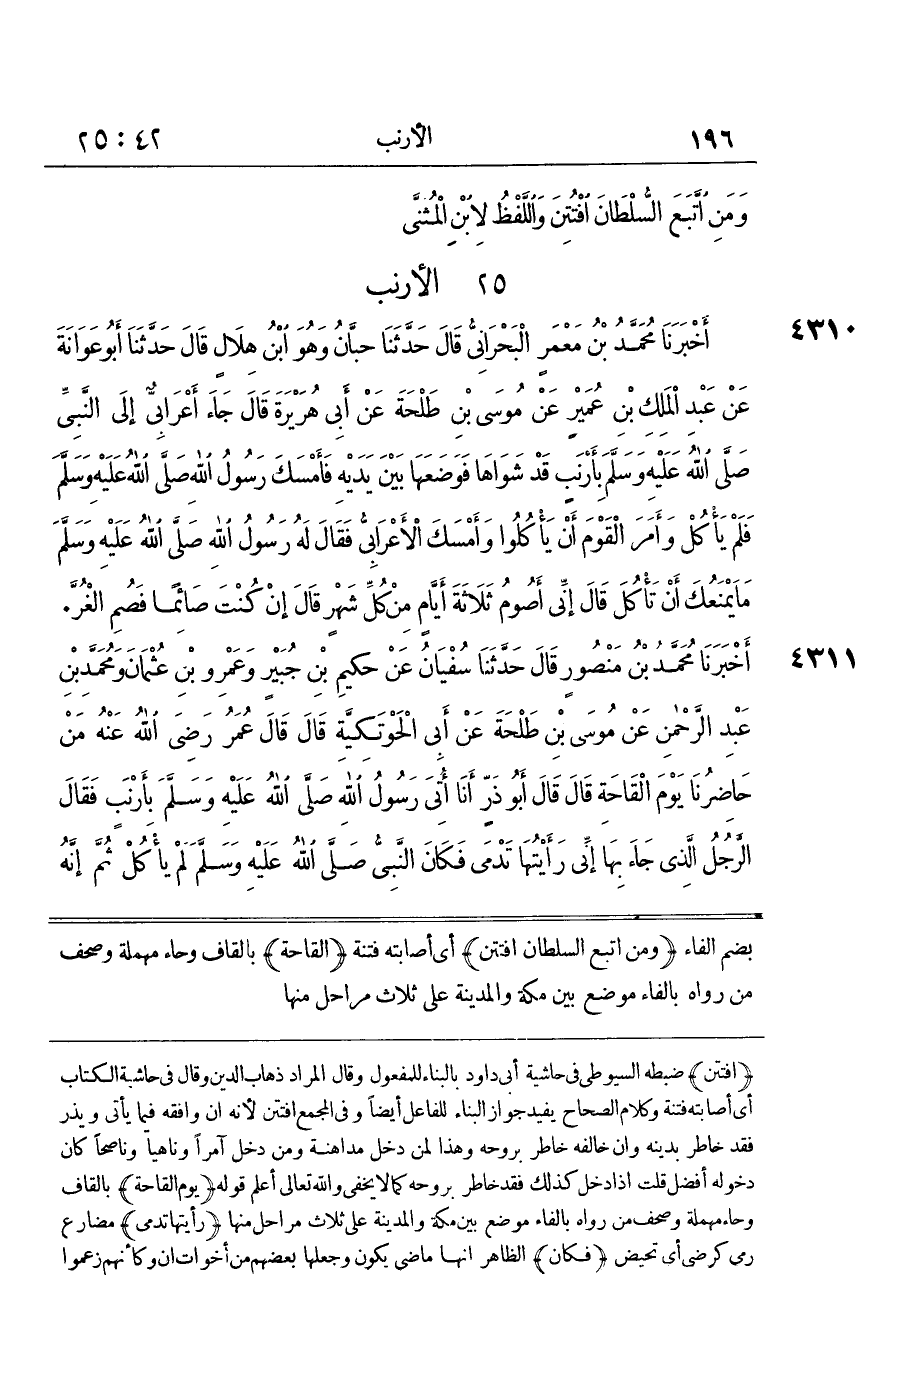 ١٩٦ الأرنب ٤٢ : ٢٥
وَمَنِ ٱتَّبَعَ السُّلْطَانَ ٱفْتُتِنَ وَاللَّفْظُ لِابْنِ الْمُثَنَّى
٢٥ الأرنب
٤٣١٠ أَخْبَرَنَا مُحَمَّدُ بْنُ مَعْمَرٍ الْبَحْرَانِىُّ قَالَ حَدَّثَنَا حِبَّانُ وَهُوَ ابْنُ هِلَالٍ قَالَ حَدَّثَنَا أَبُو عَوَانَةَ
عَنْ عَبْدِ الْمَلِكِ بْنِ عُمَيْرٍ عَنْ مُوسَى بْنِ طَلْحَةَ عَنْ أَبِى هُرَيْرَةَ قَالَ جَاءَ أَعْرَابِىٌّ إِلَى النَّبِىِّ
صَلَّى اللهُ عَلَيْهِ وَسَلَّمَ بِأَرْنَبٍ قَدْ شَوَاهَا فَوَضَعَهَا بَيْنَ يَدَيْهِ فَأَمْسَكَ رَسُولُ اللهِ صَلَّى اللهُ عَلَيْهِ وَسَلَّمَ
فَلَمْ يَأْكُلْ وَأَمَرَ الْقَوْمَ أَنْ يَأْكُلُوا وَأَمْسَكَ الْأَعْرَابِىُّ فَقَالَ لَهُ رَسُولُ اللهِ صَلَّى اللهُ عَلَيْهِ وَسَلَّمَ
مَا يَمْنَعُكَ أَنْ تَأْكُلَ قَالَ إِنِّى أَصُومُ ثَلَاثَةَ أَيَّامٍ مِنْ كُلِّ شَهْرٍ قَالَ إِنْ كُنْتَ صَائِمًا فَصُمِ الْغُرَّ.
٤٣١١ أَخْبَرَنَا مُحَمَّدُ بْنُ مَنْصُورٍ قَالَ حَدَّثَنَا سُفْيَانُ عَنْ حَكِيمِ بْنِ جُبَيْرٍ وَعَمْرِو بْنِ عُثْمَانَ وَمُحَمَّدِ بْنِ
عَبْدِ الرَّحْمٰنِ عَنْ مُوسَى بْنِ طَلْحَةَ عَنْ أَبِى الْحَوْتَكِيَّةِ قَالَ قَالَ عُمَرُ رَضِىَ اللهُ عَنْهُ مَنْ
حَاضِرُنَا يَوْمَ الْقَاحَةِ قَالَ قَالَ أَبُو ذَرٍّ أَنَا أُتِىَ رَسُولُ اللهِ صَلَّى اللهُ عَلَيْهِ وَسَلَّمَ بِأَرْنَبٍ فَقَالَ
الرَّجُلُ الَّذِى جَاءَ بِهَا إِنِّى رَأَيْتُهَا تَدْمَى فَكَانَ النَّبِىُّ صَلَّى اللهُ عَلَيْهِ وَسَلَّمَ لَمْ يَأْكُلْ ثُمَّ إِنَّهُ
بضم الفاء ﴿ومن اتبع السلطان افتتن﴾ أى أصابته فتنة ﴿القاحة﴾ بالقاف وحاء مهملة وصحف
من رواه بالفاء موضع بين مكة والمدينة على ثلاث مراحل منها
﴿افتتن﴾ ضبطه السيوطى فى حاشية أبى داود بالبناء للمفعول وقال المراد ذهاب الدين وقال فى حاشية الكتاب
أى أصابته فتنة وكلام الصحاح يفيد جواز البناء للفاعل أيضاً وفى المجمع افتتن لأنه ان وافقه فيما يأتى ويذر
فقد خاطر بدينه وان خالفه خاطر بروحه وهذا لمن دخل مداهنة ومن دخل آمراً وناهياً وناصحاً كان
دخوله أفضل قلت اذا دخل كذلك فقد خاطر بروحه كما لا يخفى والله تعالى أعلم قوله ﴿يوم القاحة﴾ بالقاف
وحاء مهملة وصحف من رواه بالفاء موضع بين مكة والمدينة على ثلاث مراحل منها ﴿رأيتها تدمى﴾ مضارع
رمى كرضى أى تحيض ﴿فكان﴾ الظاهر انها ماضى يكون وجعلها بعضهم من أخوات ان وكأنهم زعموا